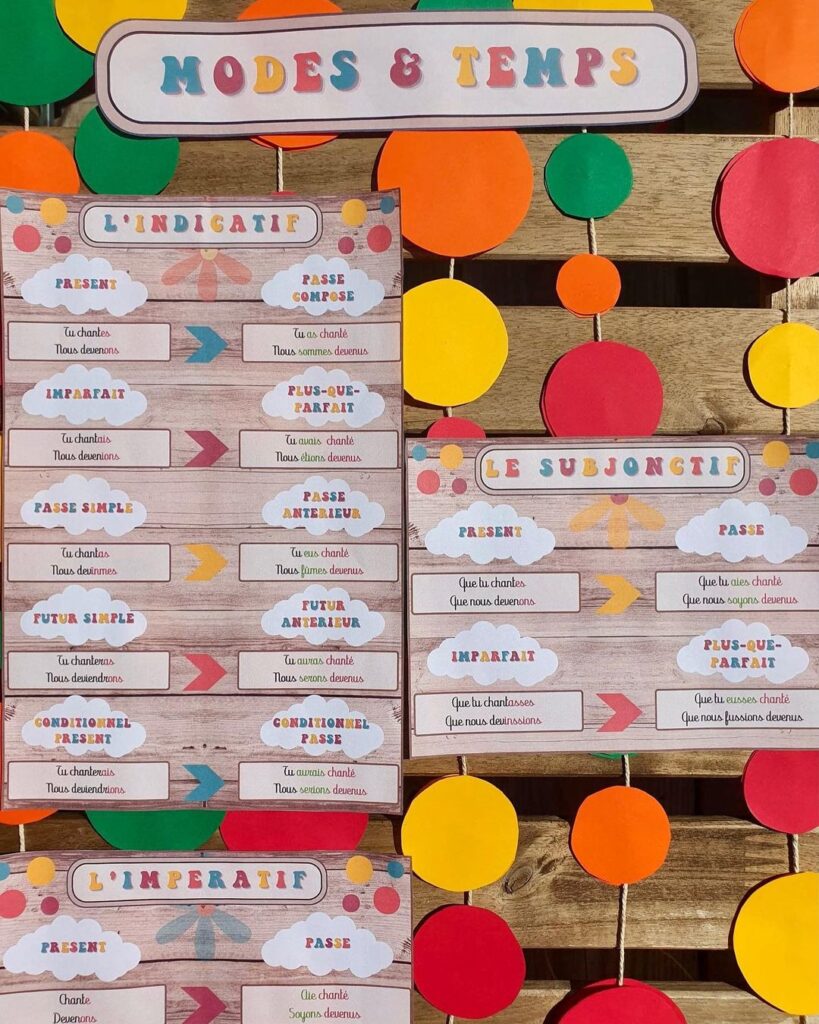 MODES & TEMPS
L'INDICATIF
PRESENT
PASSE
COMPOSE
Tu chantes
Nous devenons
Tu as chanté
Nous sommes devenus
IMPARFAIT
PLUS-QUE-
PARFAIT
Tu chantais
Nous devenions
Tu avais chanté
Nous étions devenus
PASSE SIMPLE
PASSE
ANTERIEUR
Tu chantas
Nous devinmes
Tu eus chanté
Nous fûmes devenus
FUTUR SIMPLE
FUTUR
ANTERIEUR
Tu chanteras
Nous deviendrons
Tu auras chanté
Nous serons devenus
CONDITIONNEL
PRESENT
CONDITIONNEL
PASSE
Tu chanterais
Nous deviendrions
Tu aurais chanté
Nous serions devenus
LE SUBJONCTIF
PRESENT
PASSE
Que tu chantes
Que nous devenons
Que tu aies chanté
Que nous soyons devenus
IMPARFAIT
PLUS-QUE-
PARFAIT
Que tu chantasses
Que nous devinssions
Que tu eusses chanté
Que nous fussions devenus
L'IMPERATIF
PRESENT
PASSE
Chante
Devenons
Aie chanté
Soyons devenus